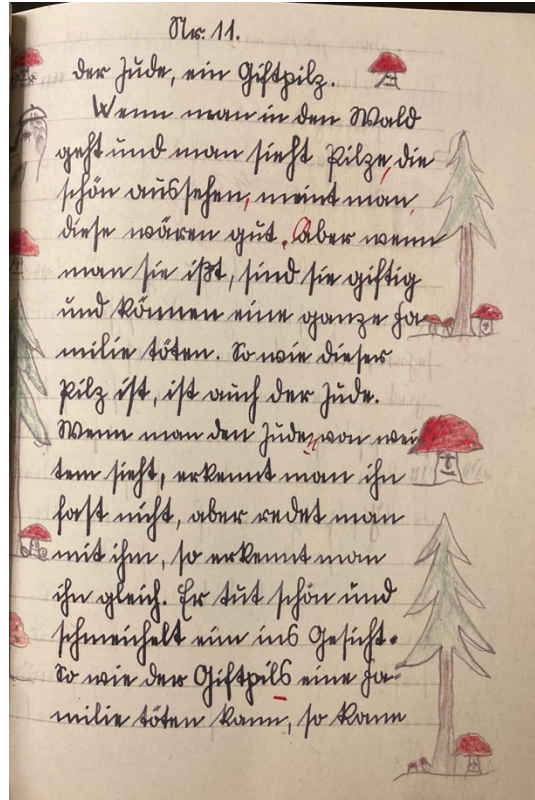 Nr. 11.
der Jude, ein Giftpilz.
Wenn man in den Wald
geht und man sieht Pilze, die
schön aussehen, meint man,
diese wären gut. Aber wenn
man sie ißt, sind sie giftig
und können eine ganze Fa-
milie töten. So wie dieser
Pilz ist, ist auch der Jude.
Wenn man den Juden von wei
tem sieht, erkennt man ihn
fast nicht, aber redet man
mit ihm, so erkennt man
ihn gleich. Er tut schön und
schmeichelt eim ins Gesicht.
So wie der Giftpils eine Fa-
milie töten kann, so kann